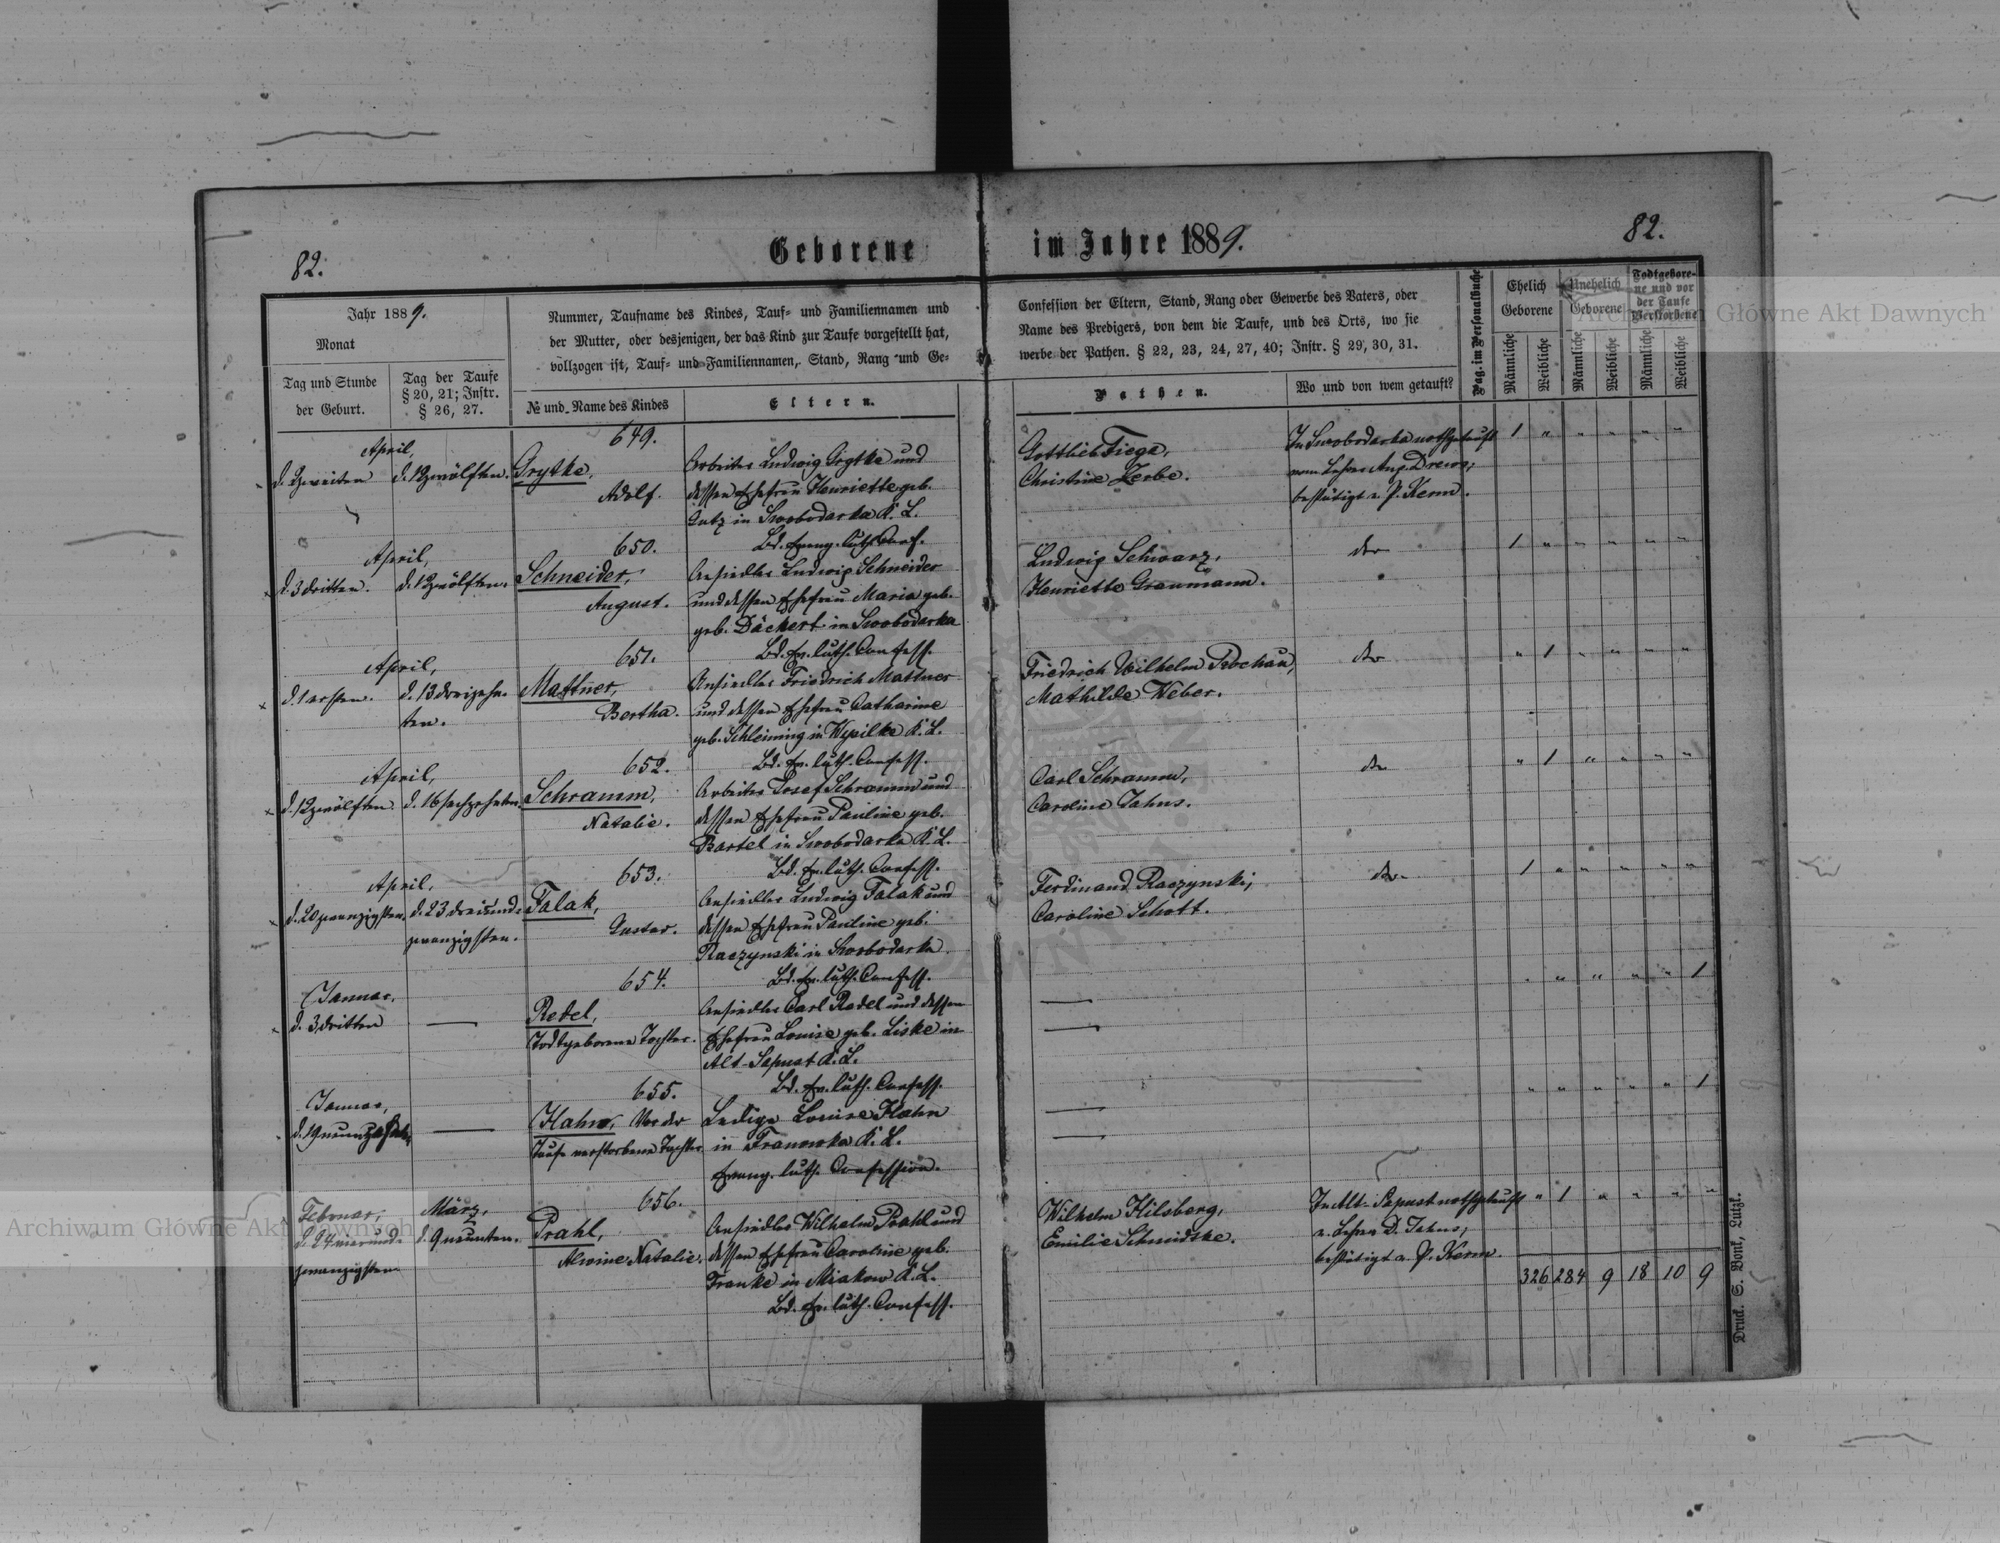 82.
Geborene im Jahre 1889.
82.
Jahr 1889.
Monat
Tag und Stunde
der Geburt.
Tag der Taufe
§ 20, 21; Instr.
§ 26, 27.
Nummer, Taufname des Kindes, Tauf- und Familiennamen und
der Mutter, oder desjenigen, der das Kind zur Taufe vorgestellt hat,
vollzogen ist, Tauf- und Familiennamen, Stand, Rang und Ge-
№ und Name des Kindes
Eltern.
Confession der Eltern, Stand, Rang oder Gewerbe des Vaters, oder
Name des Predigers, von dem die Taufe, und des Orts, wo sie
werbe der Pathen. § 22, 23, 24, 27, 40; Instr. § 29, 30, 31.
Pathen.
Wo und von wem getauft?
Pag. im Personalbuche
Ehelich
Geborene
Unehelich
Geborene
Todtgebore-
ne und vor
der Taufe
Verstorbene
Männliche
Weibliche
Männliche
Weibliche
Männliche
Weibliche
649.
April,
d. 2 zweiten
d. 12 zwölften.
Grytke,
Adolf.
Arbeiter Ludwig Grytke und
dessen Ehefrau Henriette geb.
Gutz in Swobodarka K. L.
Bd. Evang. luth. Conf.
Gottlieb Fiege,
Christine Zerbe.
In Swobodarka nothgetauft
vom Lehrer Aug. Drews;
bestätigt v. P. Kerm.
1 " " " " "
650.
April,
d. 3 dritten.
d. 12 zwölften.
Schneider,
August.
Ansiedler Ludwig Schneider
und dessen Ehefrau Maria geb.
geb. Däckert in Swobodarka
Bd. Ev. luth. Confess.
Ludwig Schwarz,
Henriette Graumann.
dto
1 " " " " "
651.
April,
d. 1 ersten.
d. 13 dreizehn-
ten.
Mattner,
Bertha.
Ansiedler Friedrich Mattner
und dessen Ehefrau Catharine
geb. Schleining in Wysilke K. L.
Bd. Ev. luth. Confess.
Friedrich Wilhelm Prochau,
Mathilde Weber.
dto
" 1 " " " "
652.
April,
d. 12 zwölften.
d. 16 sechzehnten.
Schramm,
Natalie.
Arbeiter Josef Schramm und
dessen Ehefrau Pauline geb.
Bartel in Swobodarka K. L.
Bd. Ev. luth. Confess.
Carl Schramm,
Caroline Jahns.
dto
" 1 " " " "
653.
April,
d. 20 zwanzigsten.
d. 23 dreiund-
zwanzigsten.
Falak,
Gustav.
Ansiedler Ludwig Falak und
dessen Ehefrau Pauline geb.
Raczynski in Swobodarka
Bd. Ev. luth. Confess.
Ferdinand Raczynski,
Caroline Schott.
dto
1 " " " " "
654.
Januar,
d. 3 dritten
Redel,
Todtgeborene Tochter.
Ansiedler Carl Redel und dessen
Ehefrau Louise geb. Liske in
Alt-Sapust K. L.
Bd. Ev. luth. Confess.
" " " " " 1
655.
Januar,
d. 19 neunzehnten
Hahn, Vor der
Taufe verstorbene Tochter
Ledige Louise Hahn
in Franuwka K. L.
Evang. luth. Confession.
" " " " " 1
656.
Februar,
d. 24 vierund-
zwanzigsten
März,
d. 9 neunten.
Prahl,
Alwine Natalie.
Ansiedler Wilhelm Prahl und
dessen Ehefrau Caroline geb.
Franke in Miakow K. L.
Bd. Ev. luth. Confess.
Wilhelm Hilsberg,
Emilie Schmidtke.
In Alt-Sapust nothgetauft
v. Lehrer D. Jahns;
bestätigt v. P. Kerm.
" 1 " " " "
326 284 9 18 10 9
Druck. S. Bonk, Lutzk.
Archiwum Główne Akt Dawnych
Archiwum Główne Akt Dawnych